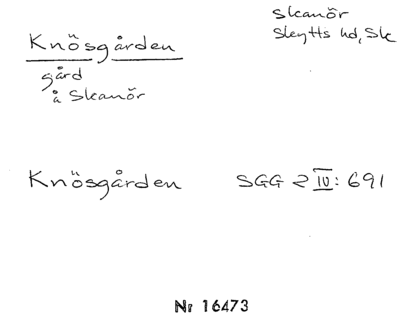 Skanör
Skytts hd, Sk
Knösgården
gård
å Skanör
Knösgården SGG 2 IV: 691
Nr 16473